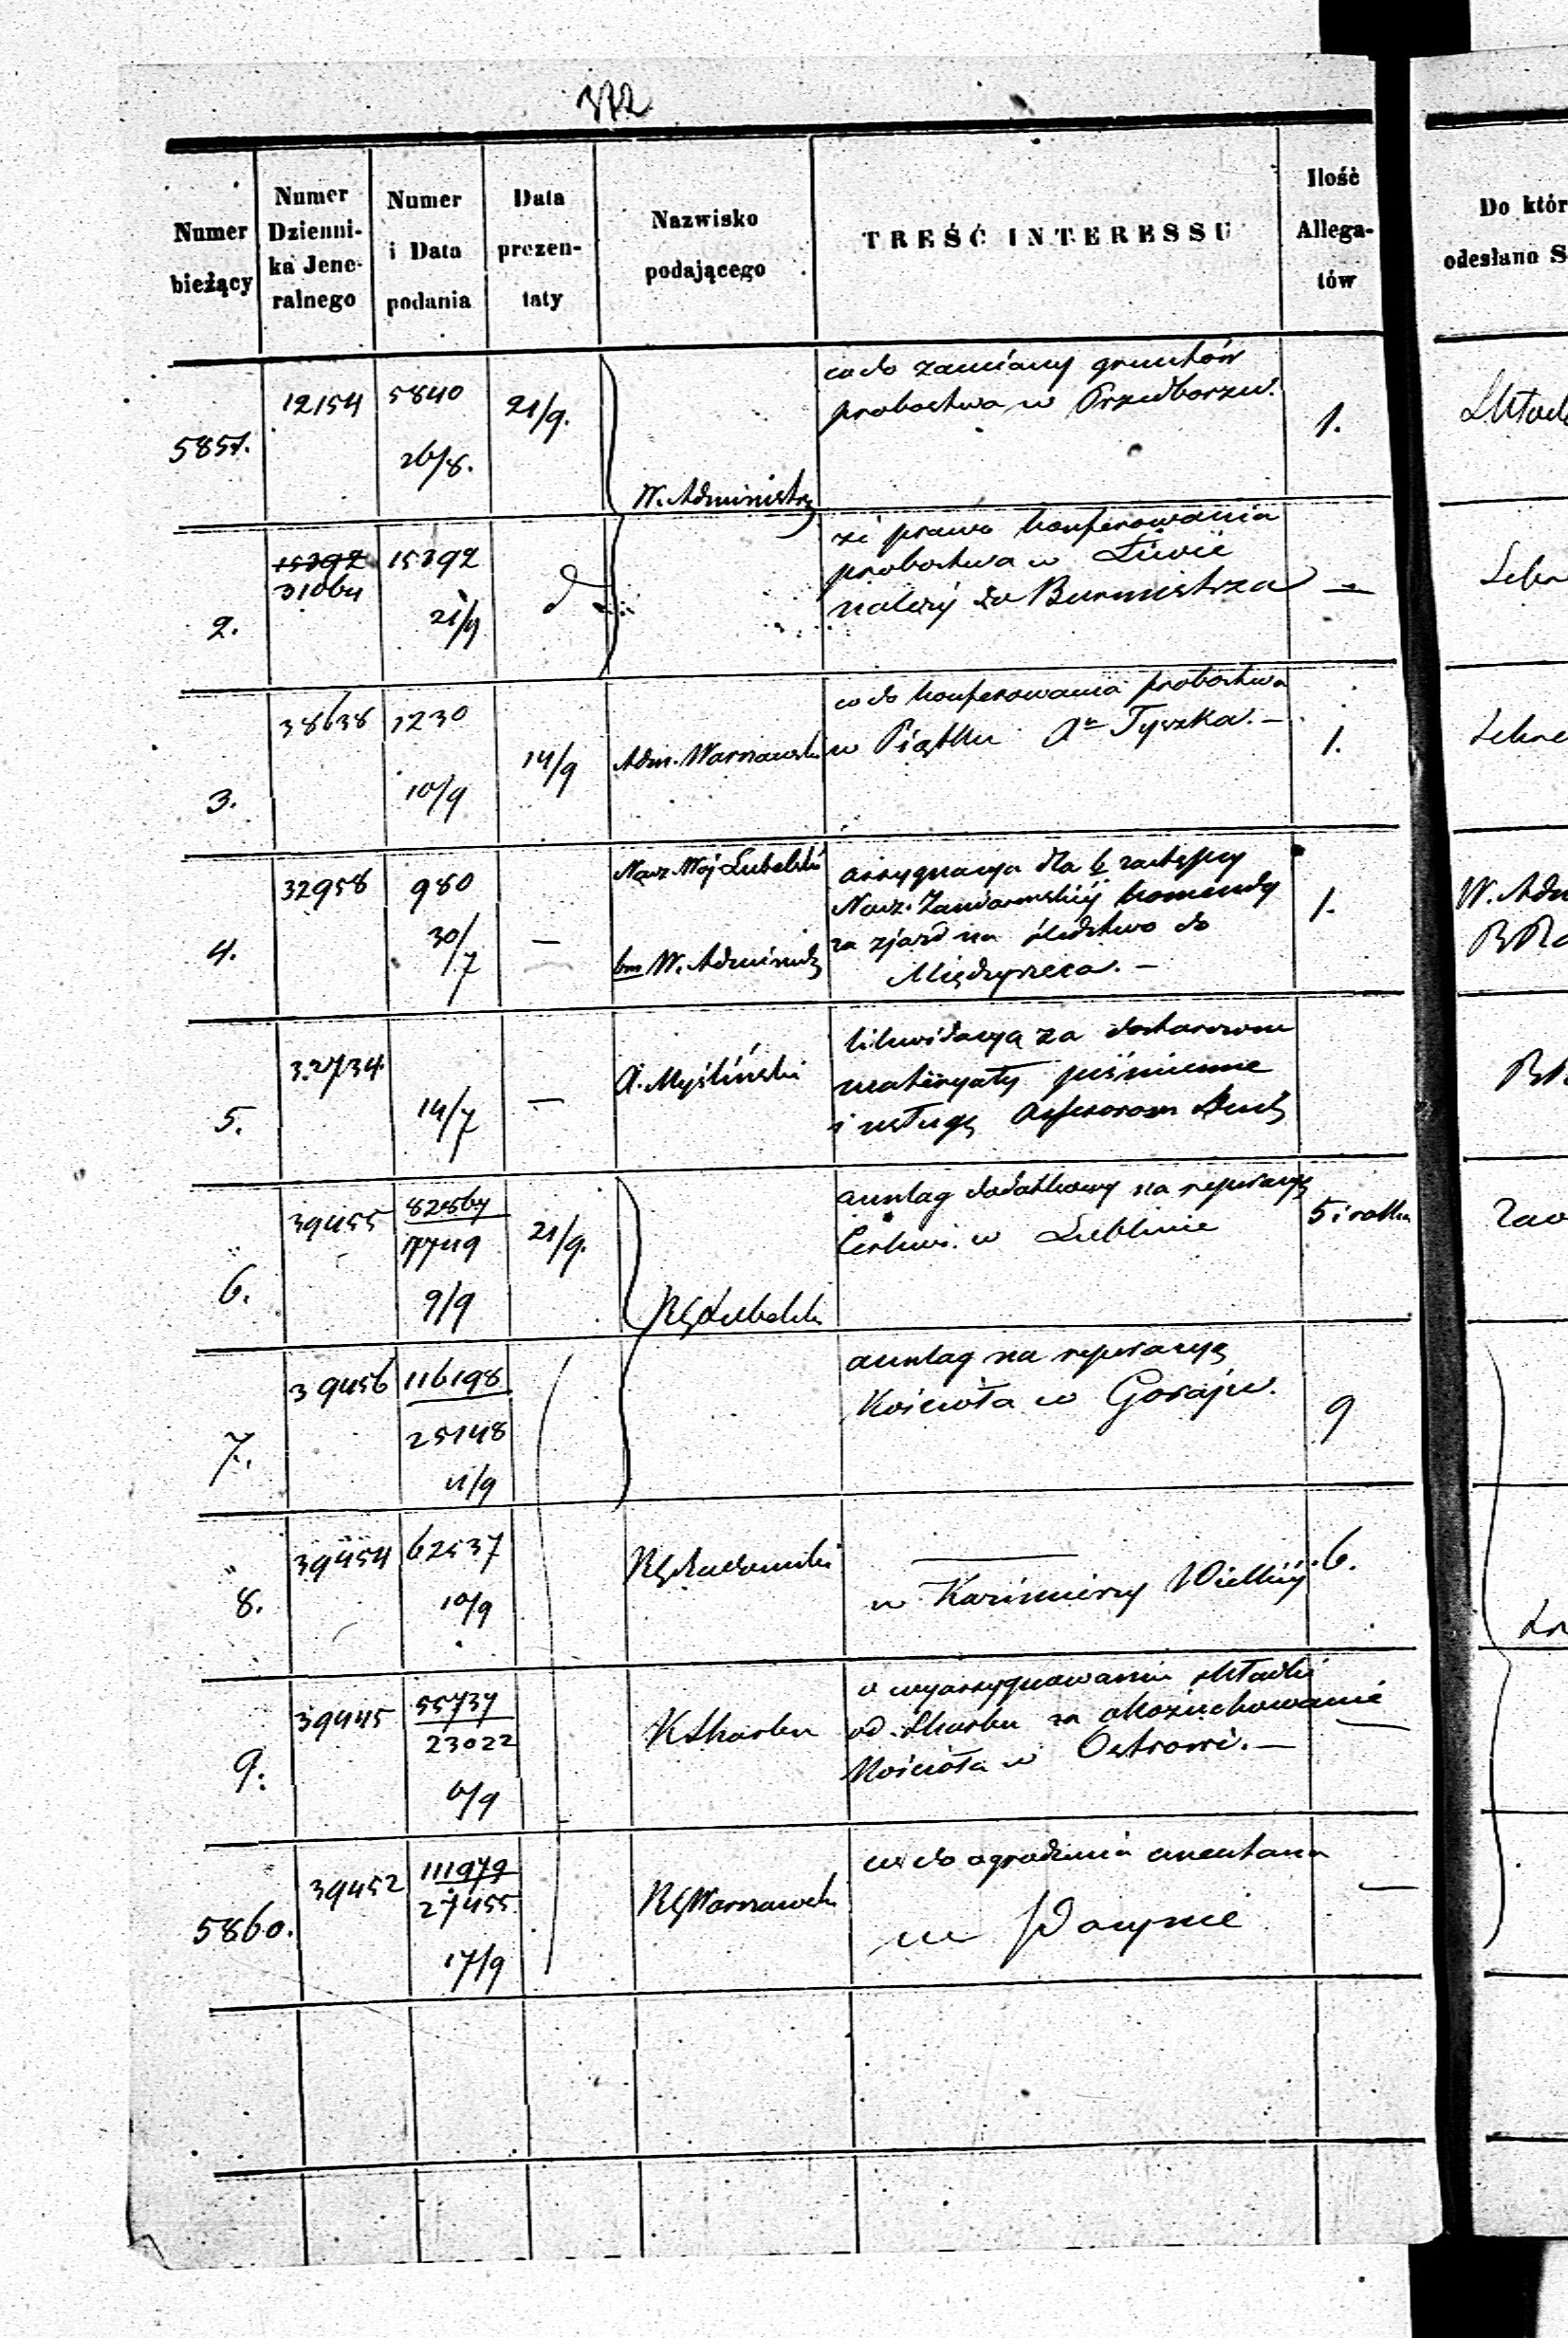 372
Numer bieżący
Numer Dzienni-ka Jene-ralnego
Numer i Data podania
Data prezen-taty
Nazwisko podającego
TREŚĆ INTERESSU
Ilość Allega-tów
Do któr
odesłano S
5851.
12154
5840
26/8.
21/9.
W. Administr
co do zamiany gruntów
probostwa w Przedborzu.
1.
2.
15392
31064
15392
21/9
że prawo konferowania
probostwa w Liwie
należy do Burmistrza
—
3.
38638
1230
10/9
14/9
Adm. Warszawski
co do konferowania probostwa
w Piątku Tyszka. —
1.
4.
32958
980
30/7
—
Nacz. Woj Lubelski
W. Administr
assygnacya dla zastępcy
Nacz. Żandarmskiej komendy
za zjazd na śledztwo do
Międzyrzeca. —
1.
W. Adm
5.
32734
14/7
—
A. Myśliński
likwidacya za dostarczone
materyały piśmienne
i usługę Assessorom
6.
39455
82867
17749
9/9
21/9.
RG Lubelski
anszlag dodatkowy na reperacyę
Cerkwi w Lublinie
5 i rolka
7.
39456
116198
25148
11/9
anszlag na reperacyę
Kościoła w Goraju.
9
8.
39454
62537
10/9
RG Radomski
—
w Kazimierzy Wielkiej
6.
9.
39445
55737
23022
6/9
K Skarbu
o wyassygnowanie składki
od Skarbu za
Kościoła w Ostrowi. —
—
5860.
39452
111979
27455
17/9
RG Warszawski
co do ogrodzenia cmentarza
w
—